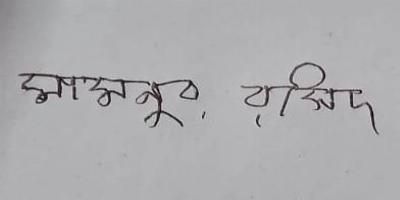 মামনুর রশিদ